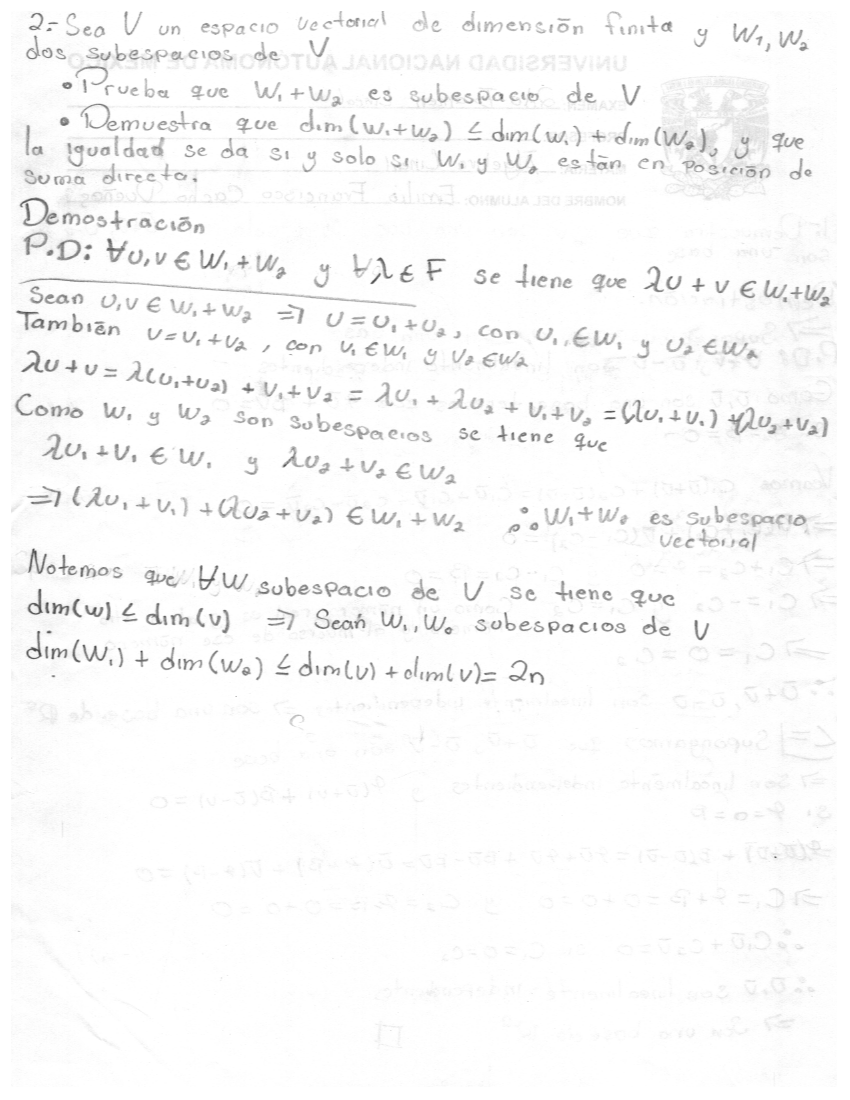 2.- Sea V un espacio vectorial de dimensión finita y W₁, W₂
dos subespacios de V
• Prueba que W₁+W₂ es subespacio de V
• Demuestra que dim(W₁+W₂) ≤ dim(W₁) + dim(W₂), y que
la igualdad se da si y solo si W₁ y W₂ están en posición de
suma directo.
Demostración
P.D: ∀u,v ∈ W₁+W₂ y ∀λ∈F se tiene que λu+v ∈ W₁+W₂
Sean u,v ∈ W₁+W₂ ⇒ u=u₁+u₂, con u₁ ∈ W₁ y u₂ ∈ W₂
También v=v₁+v₂, con v₁ ∈ W₁ y v₂ ∈ W₂
λu+v = λ(u₁+u₂) + v₁+v₂ = λu₁ + λu₂ + v₁+v₂ = (λu₁+v₁) + (λu₂+v₂)
Como W₁ y W₂ son subespacios se tiene que
λu₁+v₁ ∈ W₁ y λu₂+v₂ ∈ W₂
⇒ (λu₁+v₁) + (λu₂+v₂) ∈ W₁+W₂ ∴ W₁+W₂ es subespacio
vectorial
Notemos que ∀W subespacio de V se tiene que
dim(w) ≤ dim(v) ⇒ Sean W₁, W₂ subespacios de V
dim(W₁) + dim(W₂) ≤ dim(v) + dim(v) = 2n